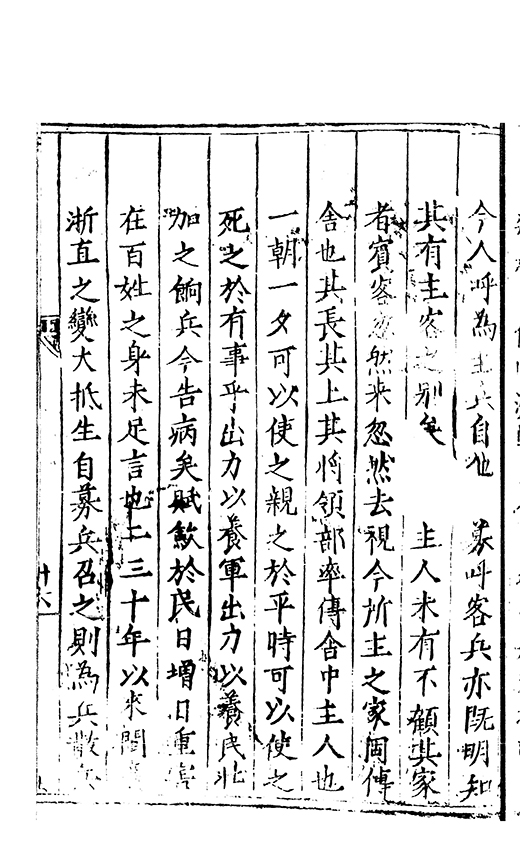 今人呼為主兵自他募呼客兵亦既明知
其有主客之別矣主人未有不顧其家
者賓客忽然来忽然去視今所主之家固傳
舍也其長其上其将領部率傳舍中主人也
一朝一夕可以使之親之於平時可以使之
死之於有事乎出力以養軍出力以養民
加之餉兵今告病矣賦歛於民日增日重害
在百姓之身未足言也二三十年以来閩
浙直之變大抵生自募兵召之則為兵散
十六